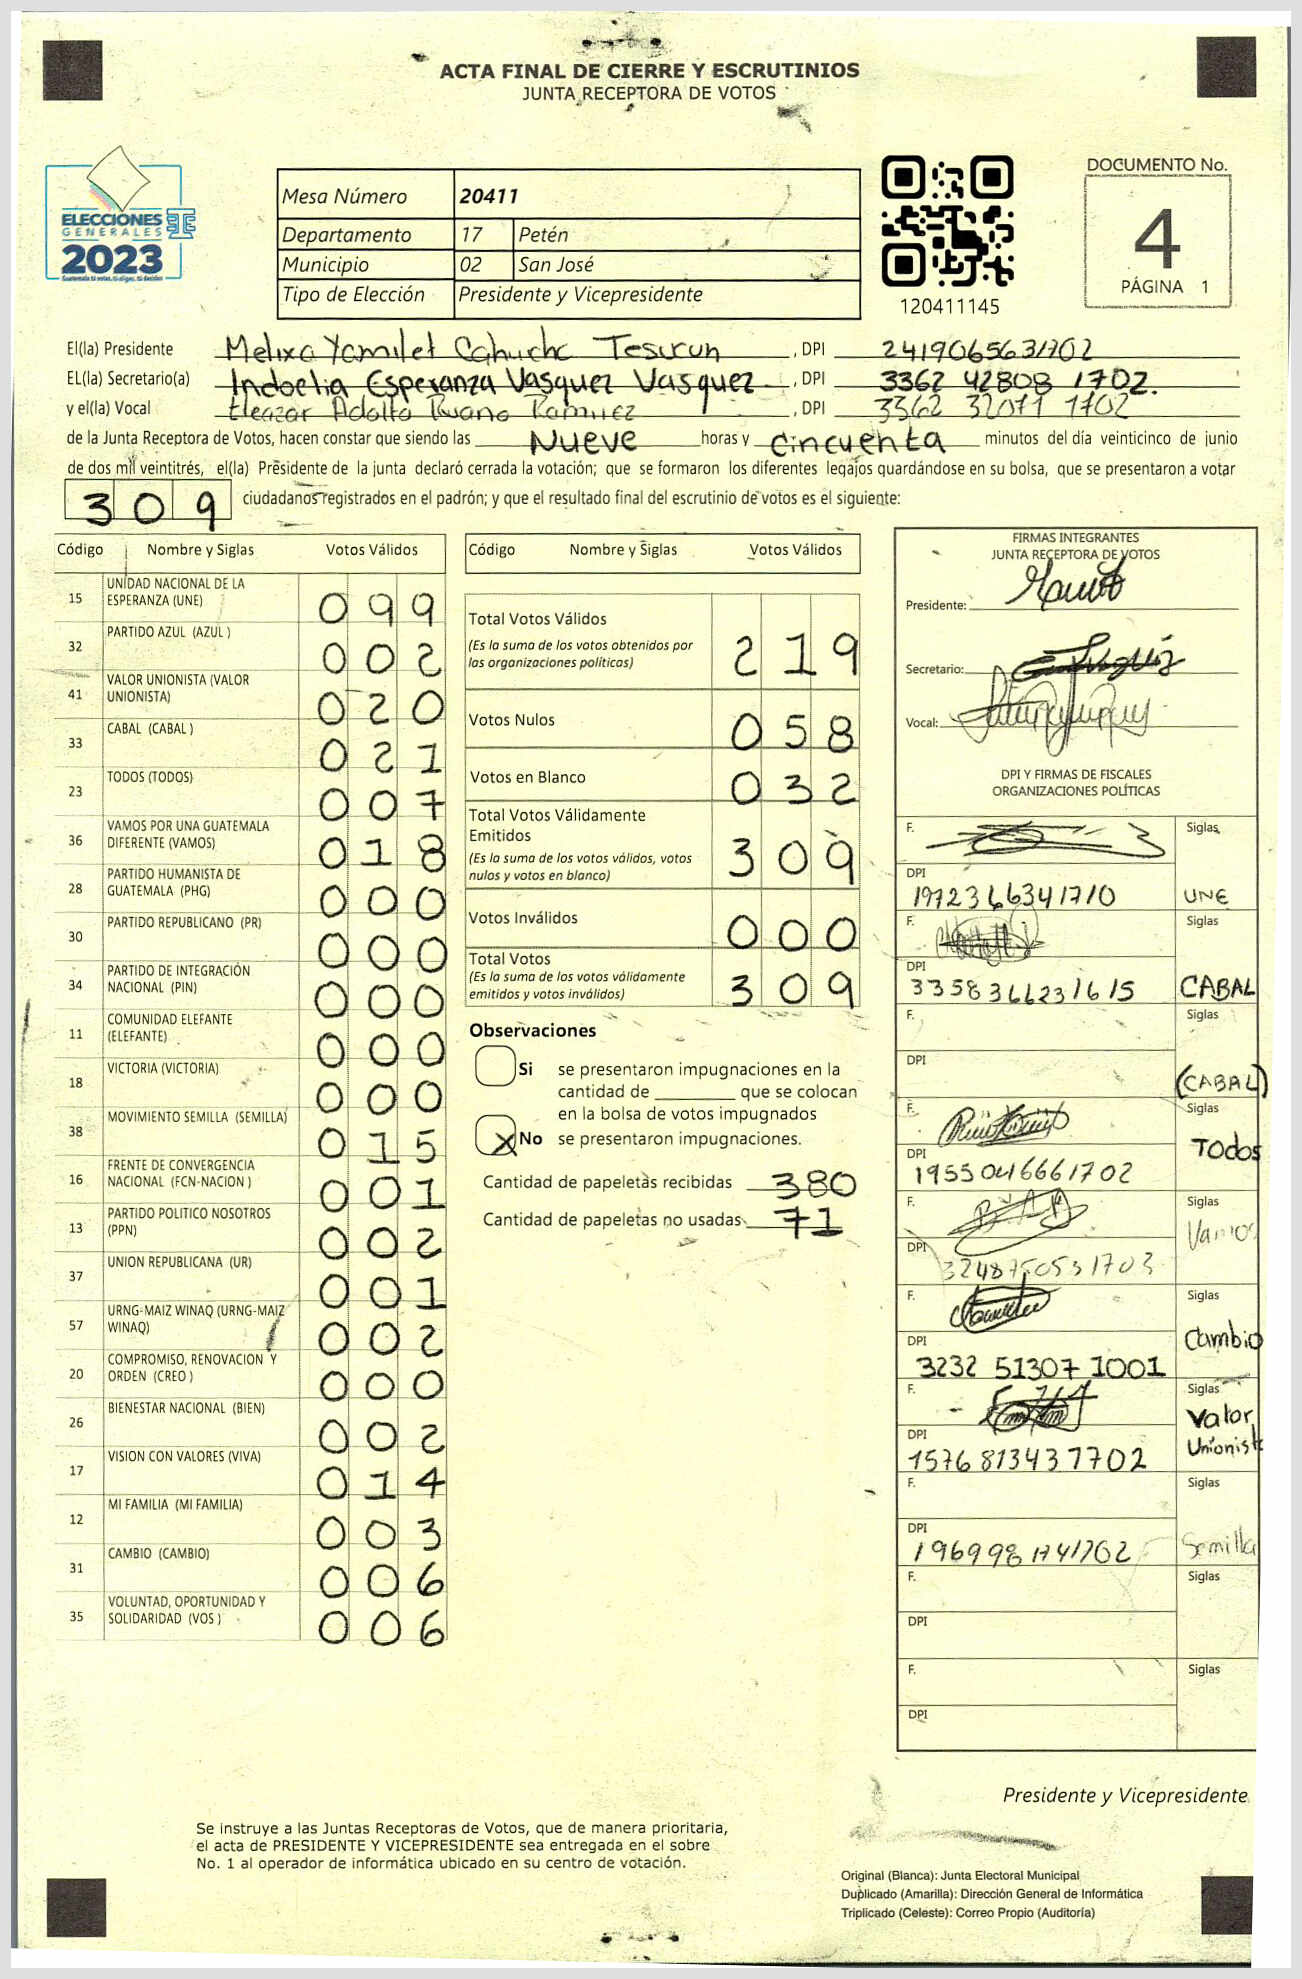 ACTA FINAL DE CIERRE Y ESCRUTINIOS
JUNTA RECEPTORA DE VOTOS
ELECCIONES
GENERALES
2023
Guatemala tú votas, tú eliges, tú decides
Mesa Número 20411
Departamento 17 Petén
Municipio 02 San José
Tipo de Elección Presidente y Vicepresidente
120411145
DOCUMENTO No.
4
PÁGINA 1
El(la) Presidente Melixa Yamilet Cahuche Tesucun , DPI 2419065631702
EL(la) Secretario(a) Indoelia Esperanza Vasquez Vasquez , DPI 3362 42808 1702.
y el(la) Vocal Eleazar Adolfo Ruano Ramirez , DPI 3362 32071 1702
de la Junta Receptora de Votos, hacen constar que siendo las Nueve horas y cincuenta minutos del día veinticinco de junio
de dos mil veintitrés, el(la) Présidente de la junta declaró cerrada la votación; que se formaron los diferentes legajos quardándose en su bolsa, que se presentaron a votar
309 ciudadanos registrados en el padrón; y que el resultado final del escrutinio de votos es el siguiente:
Código Nombre y Siglas Votos Válidos
15 UNIDAD NACIONAL DE LA ESPERANZA (UNE) 099
32 PARTIDO AZUL (AZUL ) 002
41 VALOR UNIONISTA (VALOR UNIONISTA) 020
33 CABAL (CABAL ) 021
23 TODOS (TODOS) 007
36 VAMOS POR UNA GUATEMALA DIFERENTE (VAMOS) 018
28 PARTIDO HUMANISTA DE GUATEMALA (PHG) 000
30 PARTIDO REPUBLICANO (PR) 000
34 PARTIDO DE INTEGRACIÓN NACIONAL (PIN) 000
11 COMUNIDAD ELEFANTE (ELEFANTE) 000
18 VICTORIA (VICTORIA) 000
38 MOVIMIENTO SEMILLA (SEMILLA) 015
16 FRENTE DE CONVERGENCIA NACIONAL (FCN-NACION ) 001
13 PARTIDO POLITICO NOSOTROS (PPN) 002
37 UNION REPUBLICANA (UR) 001
57 URNG-MAIZ WINAQ (URNG-MAIZ WINAQ) 002
20 COMPROMISO, RENOVACION Y ORDEN (CREO ) 000
26 BIENESTAR NACIONAL (BIEN) 002
17 VISION CON VALORES (VIVA) 014
12 MI FAMILIA (MI FAMILIA) 003
31 CAMBIO (CAMBIO) 006
35 VOLUNTAD, OPORTUNIDAD Y SOLIDARIDAD (VOS ) 006
Código Nombre y Siglas Votos Válidos
Total Votos Válidos 219
(Es la suma de los votos obtenidos por
las organizaciones políticas)
Votos Nulos 058
Votos en Blanco 032
Total Votos Válidamente
Emitidos 309
(Es la suma de los votos válidos, votos
nulos y votos en blanco)
Votos Inválidos 000
Total Votos 309
(Es la suma de los votos válidamente
emitidos y votos inválidos)
Observaciones
Si se presentaron impugnaciones en la
cantidad de ________ que se colocan
en la bolsa de votos impugnados
X No se presentaron impugnaciones.
Cantidad de papeletas recibidas 380
Cantidad de papeletas no usadas 71
FIRMAS INTEGRANTES
JUNTA RECEPTORA DE VOTOS
Presidente:
Secretario:
Vocal:
DPI Y FIRMAS DE FISCALES
ORGANIZACIONES POLÍTICAS
F. Siglas
DPI 1972366341710 UNE
F. Siglas
DPI 3358366231615 CABAL
F. Siglas
DPI (CABAL)
F. Siglas
DPI 1955046661702 TODOS
F. Siglas
DPI 3248750531703 Vamos
F. Siglas
DPI 3232 51307 1001 Cambio
F. Siglas
DPI 1576 813437702 Valor Unionist
F. Siglas
DPI 196998 1741702 Semilla
F. Siglas
DPI
F. Siglas
DPI
Presidente y Vicepresidente
Se instruye a las Juntas Receptoras de Votos, que de manera prioritaria,
el acta de PRESIDENTE Y VICEPRESIDENTE sea entregada en el sobre
No. 1 al operador de informática ubicado en su centro de votación.
Original (Blanca): Junta Electoral Municipal
Duplicado (Amarilla): Dirección General de Informática
Triplicado (Celeste): Correo Propio (Auditoría)